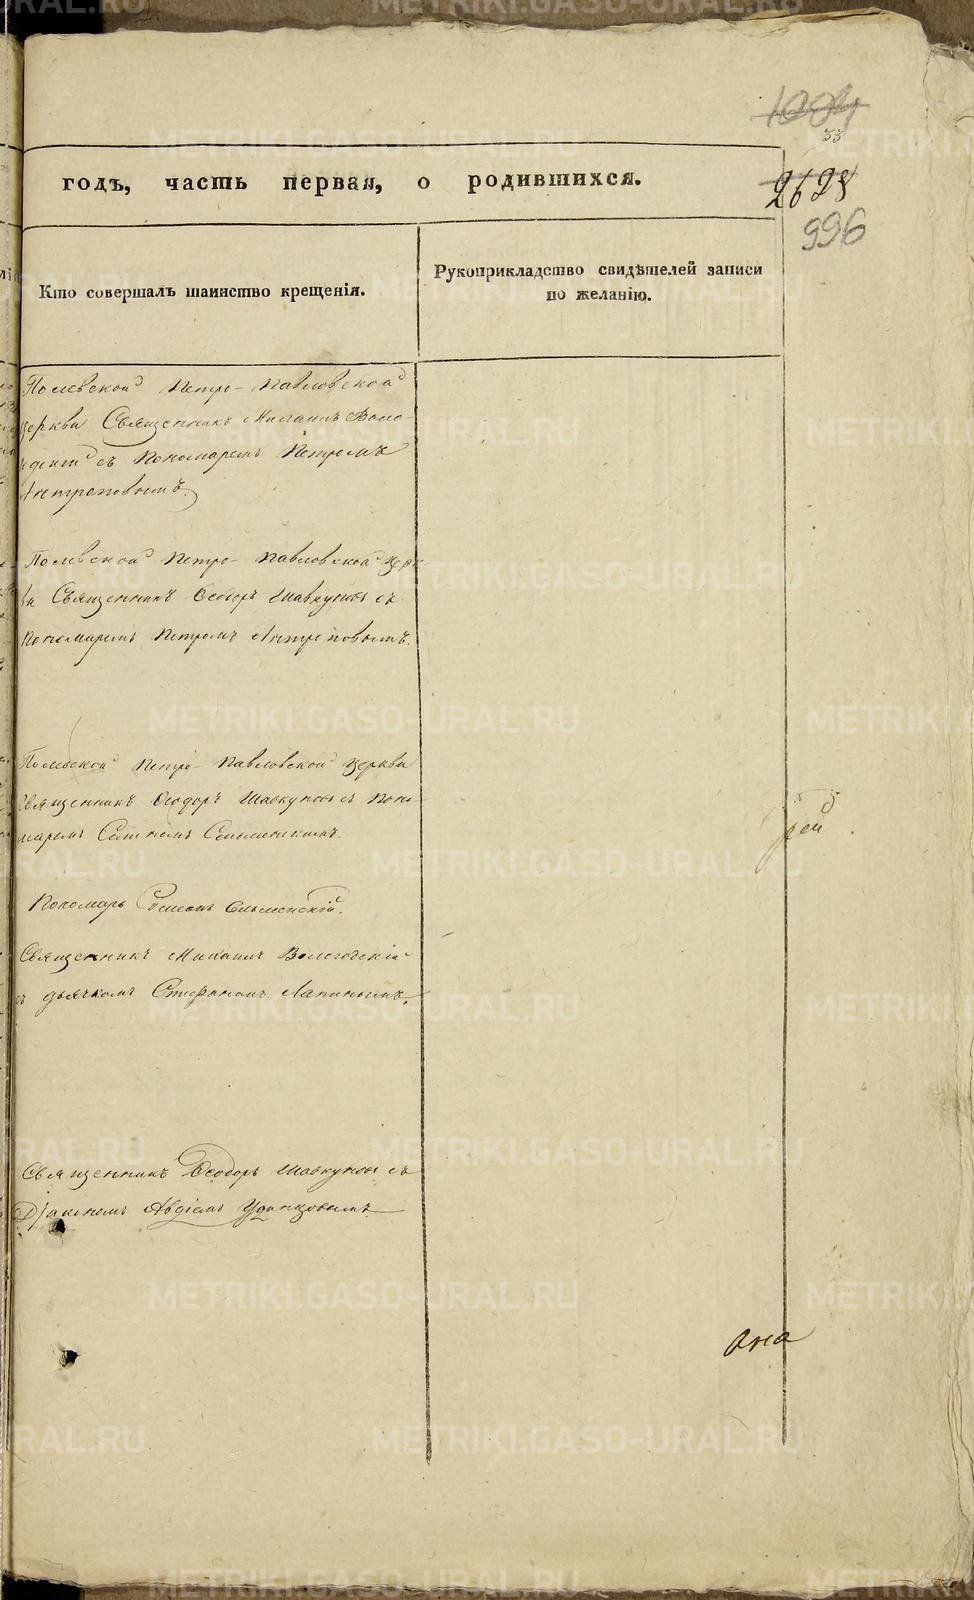 1004
33
годъ, часть первая, о родившихся.
2628
996
Кто совершалъ таинство крещенія.
Рукоприкладство свидѣтелей записи
по желанію.
Полевской Петро-Павловской
церкви Священникъ Михаилъ Воло
годскій съ Пономаремъ Петромъ
Антроповымъ.
Полевской Петро-Павловской Церк
ви Священникъ Ѳеодоръ Шавкуновъ съ
Пономаремъ Петромъ Антроповымъ.
Полевской Петро-Павловской Церкви
Священникъ Ѳеодоръ Шавкуновъ съ Поно
маремъ Сельменскимъ.
рей
Пономарь Сельменскій.
Священникъ Михаилъ Вологодскій
съ дьячкомъ Стефаномъ Лапинымъ.
Священникъ Ѳеодоръ Шавкуновъ съ
Діакономъ Авдіемъ Удинцовымъ.
она
METRIKI.GASO-URAL.RU